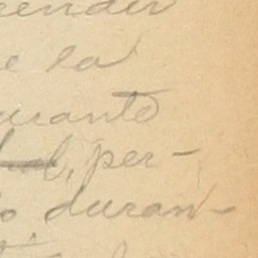 ender
e la
urante
l, per-
o duran-